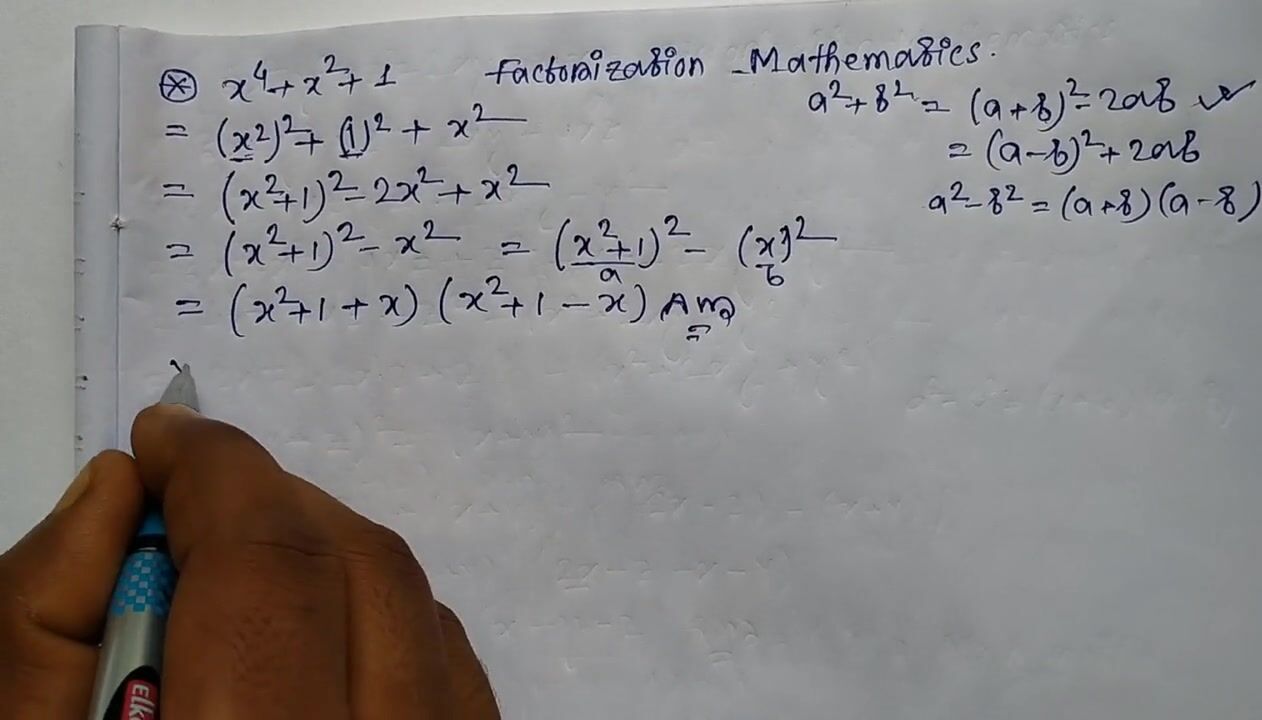 ⊛ x⁴ + x² + 1 Factorization - Mathematics.
= (x²)² + (1)² + x²
= (x²+1)² - 2x² + x²
= (x²+1)² - x² = (x²+1)² - (x)²
a b
= (x²+1+x) (x²+1-x) Ans
a²+b² = (a+b)² - 2ab ✓
= (a-b)² + 2ab
a²-b² = (a+b)(a-b)
Elk